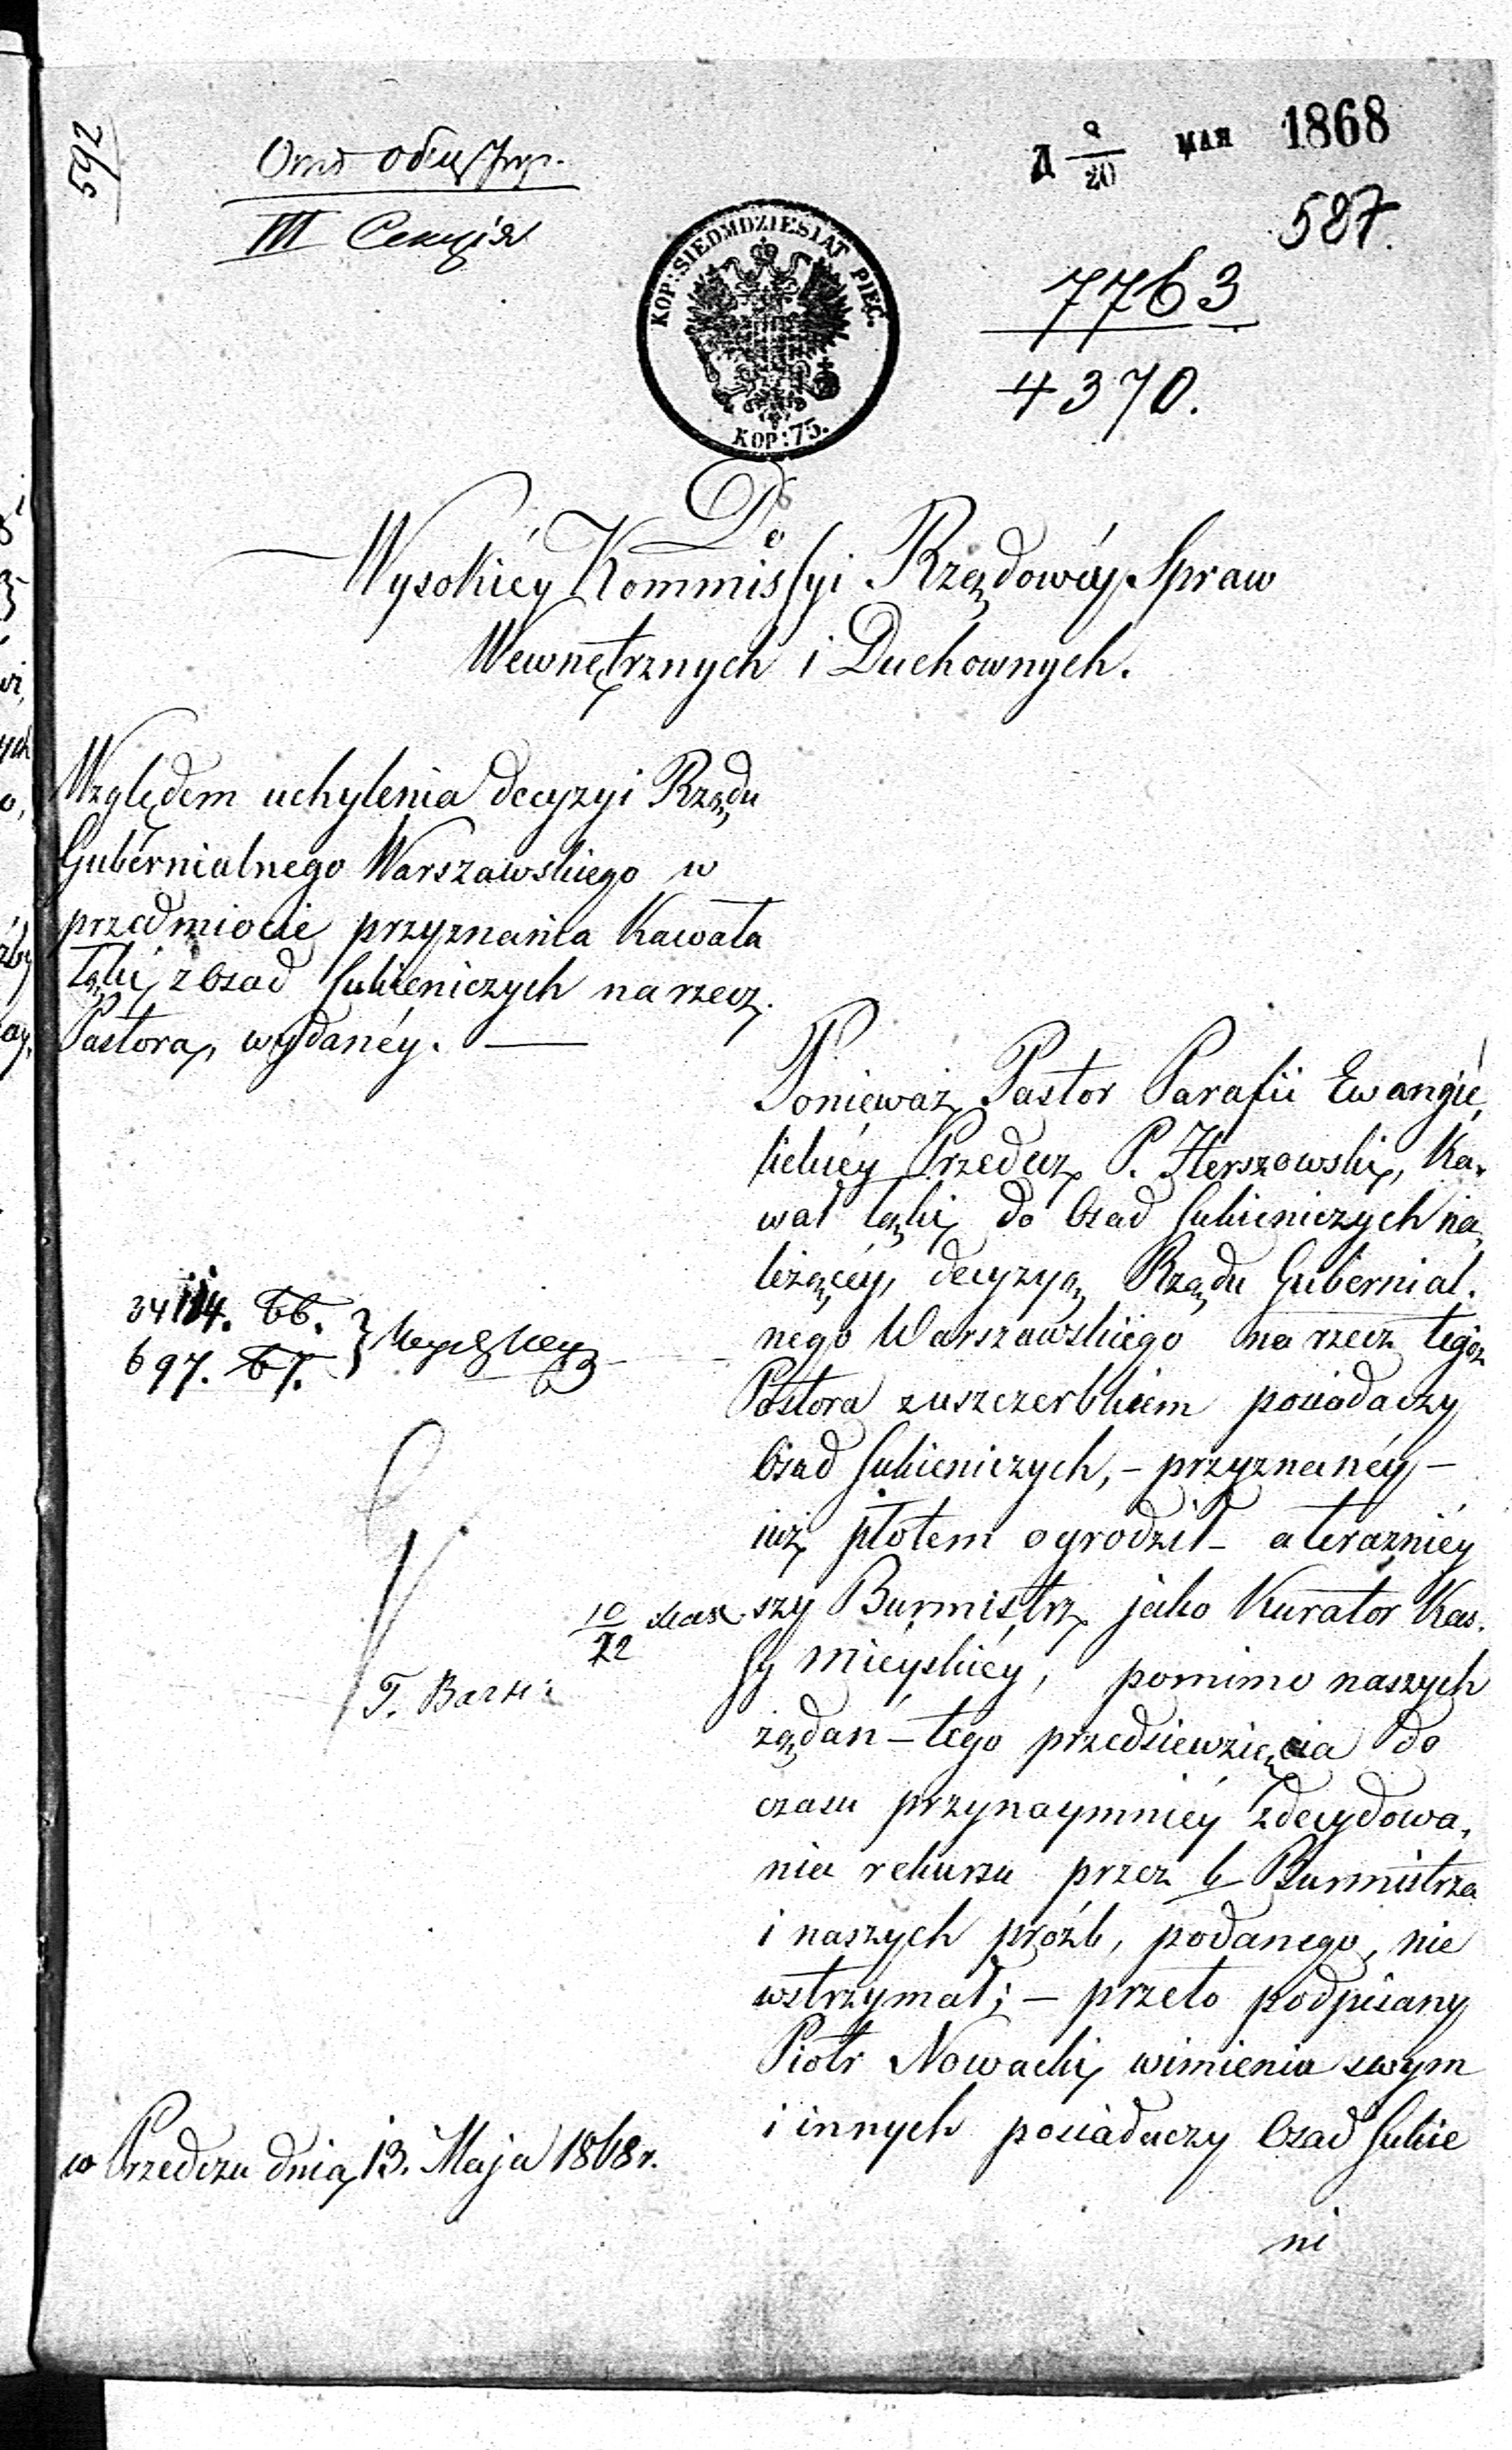 592
III Секція
8/20 МАЯ 1868
587.
7763
4370.
KOP: SIEDMDZIESIĄT PIĘĆ.
KOP: 75.
Do
Wysokiéy Kommissyi Rządowéy Spraw
Wewnętrznych i Duchownych.
Względem uchylenia decyzyi Rządu
Gubernialnego Warszawskiego w
przedmiocie przyznania Kawała
łąki z Osad Sukieniczych na rzecz
Pastora, wydanéy. —
Ponieważ Pastor Parafii Ewangie,
lickiéy Przedecz P. Herszowski, Ka,
wał łąki do Osad Sukieniczych na,
leżącéy, decyzyą Rządu Gubernial.
nego Warszawskiego na rzecz tegoż
Pastora z uszczerbkiem posiadaczy
Osad Sukieniczych, – przyznanéy –
iuż płotem ogrodził – a teraźniéy
szy Burmistrz jako Kurator Kas.
sy Miéyskiéy, pomimo naszych
żądań – tego przedsiewzięcia do
czasu przynaymniéy zdecydowa,
nia rekursu przez b Burmistrza
i naszych próźb, podanego, nie
wstrzymał; – przeto podpisany
Piotr Nowacki wimieniu swym
i innych posiadaczy Osad Sukie
ni
697.
10/22 мая
w Przedczu dnia 13. Maja 1868 r.